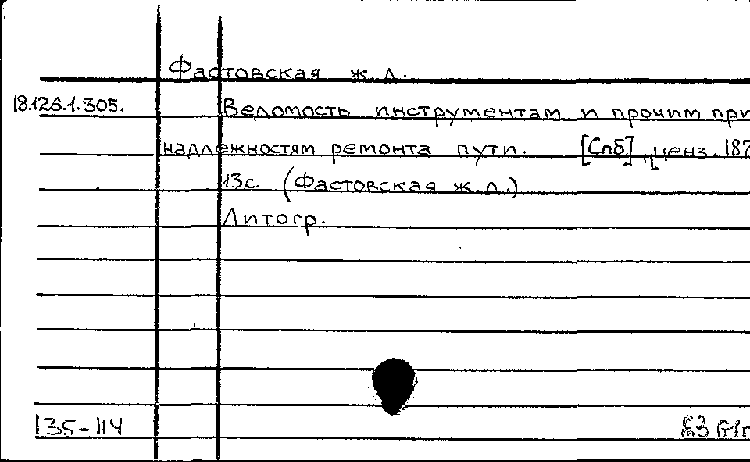 Фастовская ж. д.
18.126.1.305. Ведомость инструментам и прочим при
надлежностям ремонта пути. [Спб], ценз. 187
13с. (Фастовская ж. д.)
Литогр.
135-114